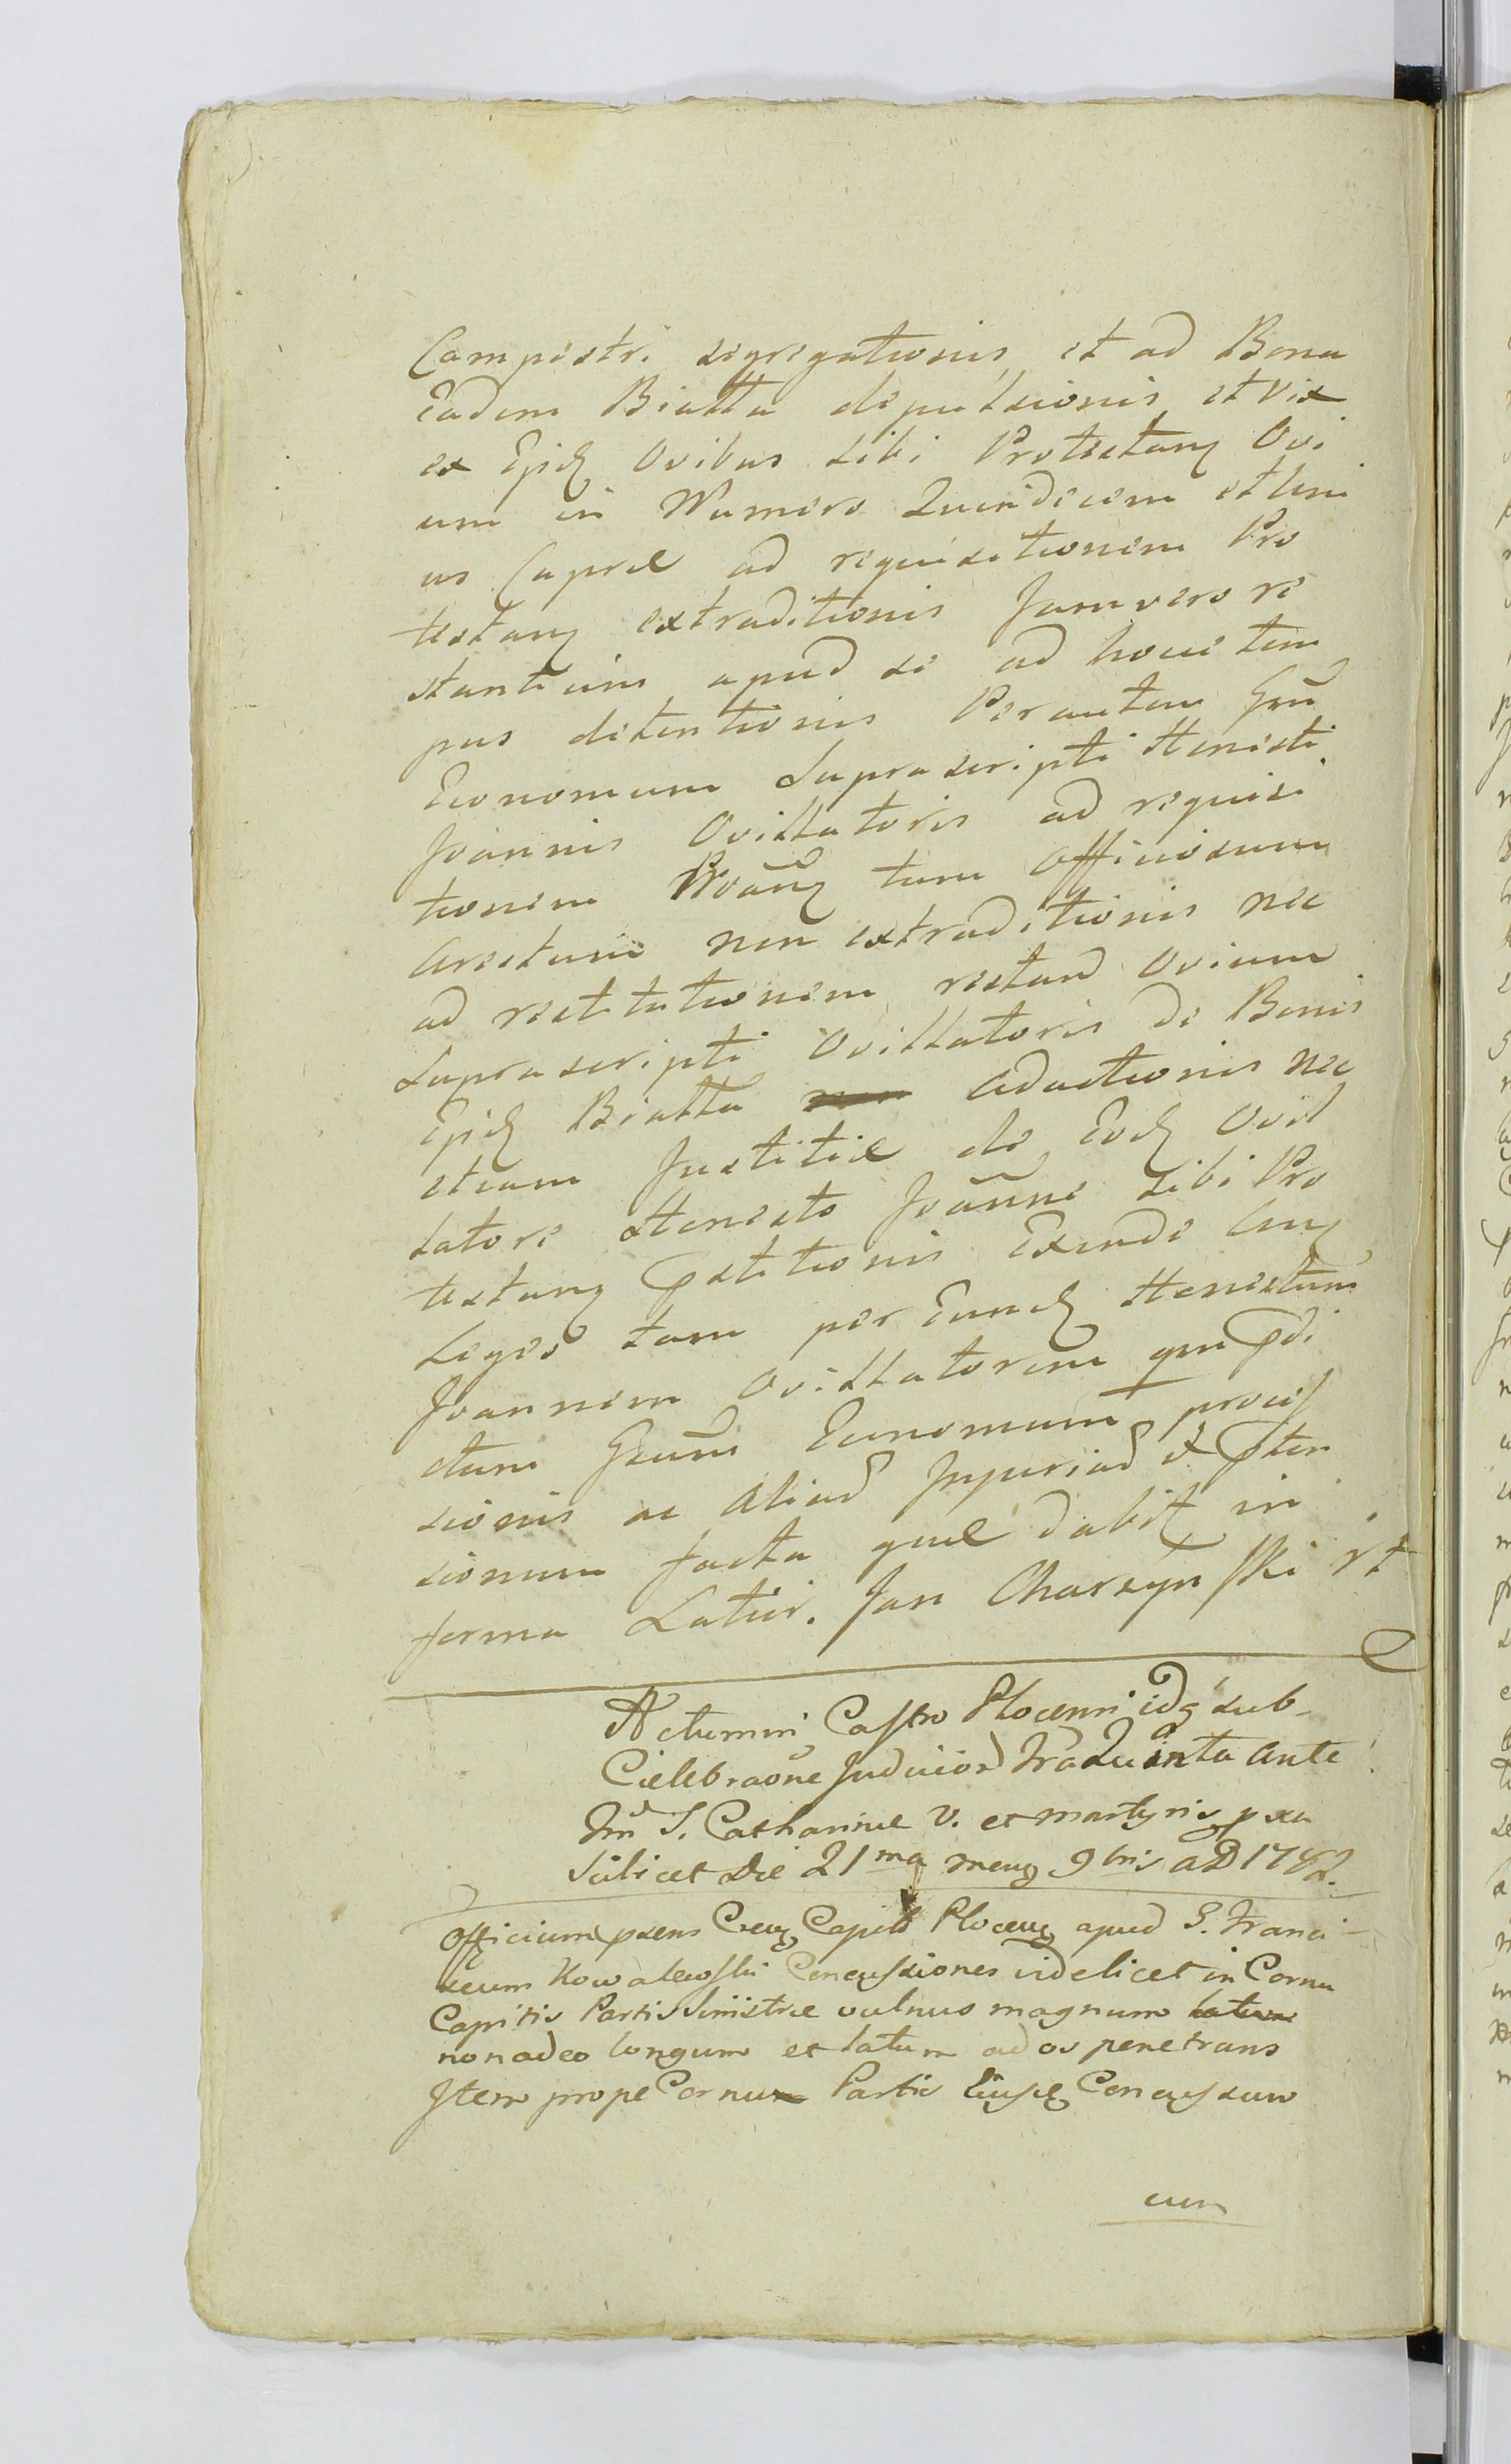 Campestri segregationis, et ad Bona
Eadem Biatta depulsionis, et vix
ex Ejsd Ovibus sibi Protestan Ovi
um in Numero Quindecem et Uni
us Caprae ad requisitionem Pro
testan extraditionis Jamvero re
stantium apud se ad hocce tem
pus detentionis Perautem Gen
Economum Suprascripti Honesti
Joannis Ovillatoris ad requisi
tionem Ptoan tum Officiosum
Arestum non extraditionis nec
ad restitutionem restand Ovium
Suprascripti Ovillatoris de Bonis
Ejsd Biatta non Adactionis nec
etiam Justitiae de Eod Ovil
latore Honesto Joanne sibi Pro
testan Pstitionis Exinde Cung
Leges tam per Eund Honestum
Joannem Ovillatorem qm Pdi
ctum Gnum Economum procis
sionis ac Aliar Injuriar et Pten
sionum facta quae dabit in
forma Latior. Jan Charzynski rt
Actum in Castro Plocensi idq sub
Celebraone Judicior Fra Quinta Ante
Fm S. Catharinae V. et martyris pxa
Scilicet die 21ma mens 9bris AD 1782.
Officium psens Cren Capitt Plocen apud G. Franci-
scum Kowalewski Concussiones videlicet in Cornu
Capitis Partis Sinistrae vulnus magnum latum
non adeo longum et latum ad os penetrans
Item prope Cornu Partis Ejusd Concussum
cum